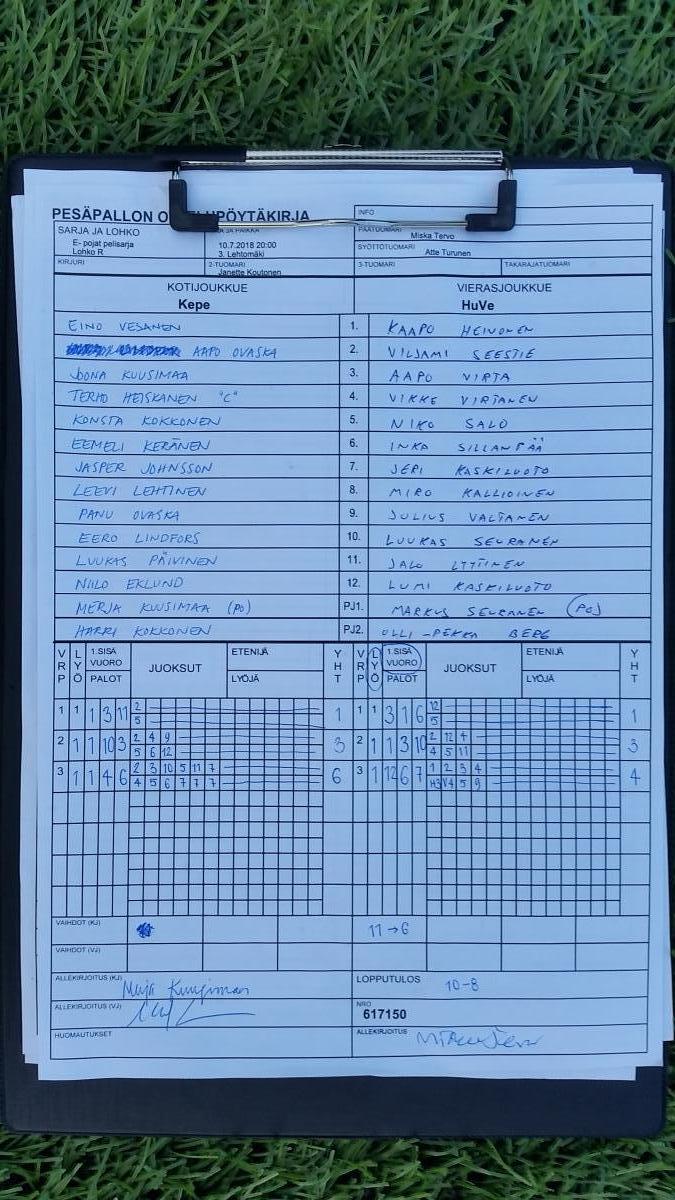 PESÄPALLON O PÖYTÄKIRJA
INFO
SARJA JA LOHKO
E- pojat pelisarja
Lohko R
JA PAIKKA
10.7.2018 20:00
3. Lehtomäki
PÄÄTUOMARI
Miska Tervo
SYÖTTÖTUOMARI
Atte Turunen
KIRJURI
2-TUOMARI
Janette Koutonen
3-TUOMARI
TAKARAJATUOMARI
KOTIJOUKKUE
Kepe
VIERASJOUKKUE
HuVe
EINO VESANEN 1. KAAPO HEINONEN
AAPO OVASKA 2. VILJAMI SEESTIE
JOONA KUUSIMAA 3. AAPO VIRTA
TERHO HEISKANEN "C" 4. VIKKE VIRTANEN
KONSTA KOKKONEN 5. NIKO SALO
EEMELI KERÄNEN 6. INKA SILLANPÄÄ
JASPER JOHNSSON 7. JERI KASKILUOTO
LEEVI LEHTINEN 8. MIRO KALLIOINEN
PANU OVASKA 9. JULIUS VALTANEN
EERO LINDFORS 10. LUUKAS SEURANEN
LUUKAS PÄIVINEN 11. JALO LYTINEN
NIILO EKLUND 12. LUMI KASKILUOTO
MERJA KUUSIMAA (PO) PJ1. MARKUS SEURANEN (PO)
HARRI KOKKONEN PJ2. OLLI-PEKKA BERG
VRP LYÖ 1.SISÄ VUORO PALOT JUOKSUT ETENIJÄ LYÖJÄ YHT VRP LYÖ 1.SISÄ VUORO PALOT JUOKSUT ETENIJÄ LYÖJÄ YHT
1 1 1 3 11 2 1 1 1 3 1 6 12 1
5 5
2 1 1 10 3 2 4 9 3 2 1 1 3 10 2 12 4 3
5 6 12 4 5 11
3 1 1 4 6 2 3 10 5 11 7 6 3 1 12 6 7 1 2 3 4 4
4 5 6 7 7 7 H3 V4 5 9
VAIHDOT (KJ)
11→6
VAIHDOT (VJ)
ALLEKIRJOITUS (KJ) Merja Kuusimaa
LOPPUTULOS 10-8
ALLEKIRJOITUS (VJ)
NRO
617150
HUOMAUTUKSET
ALLEKIRJOITUS